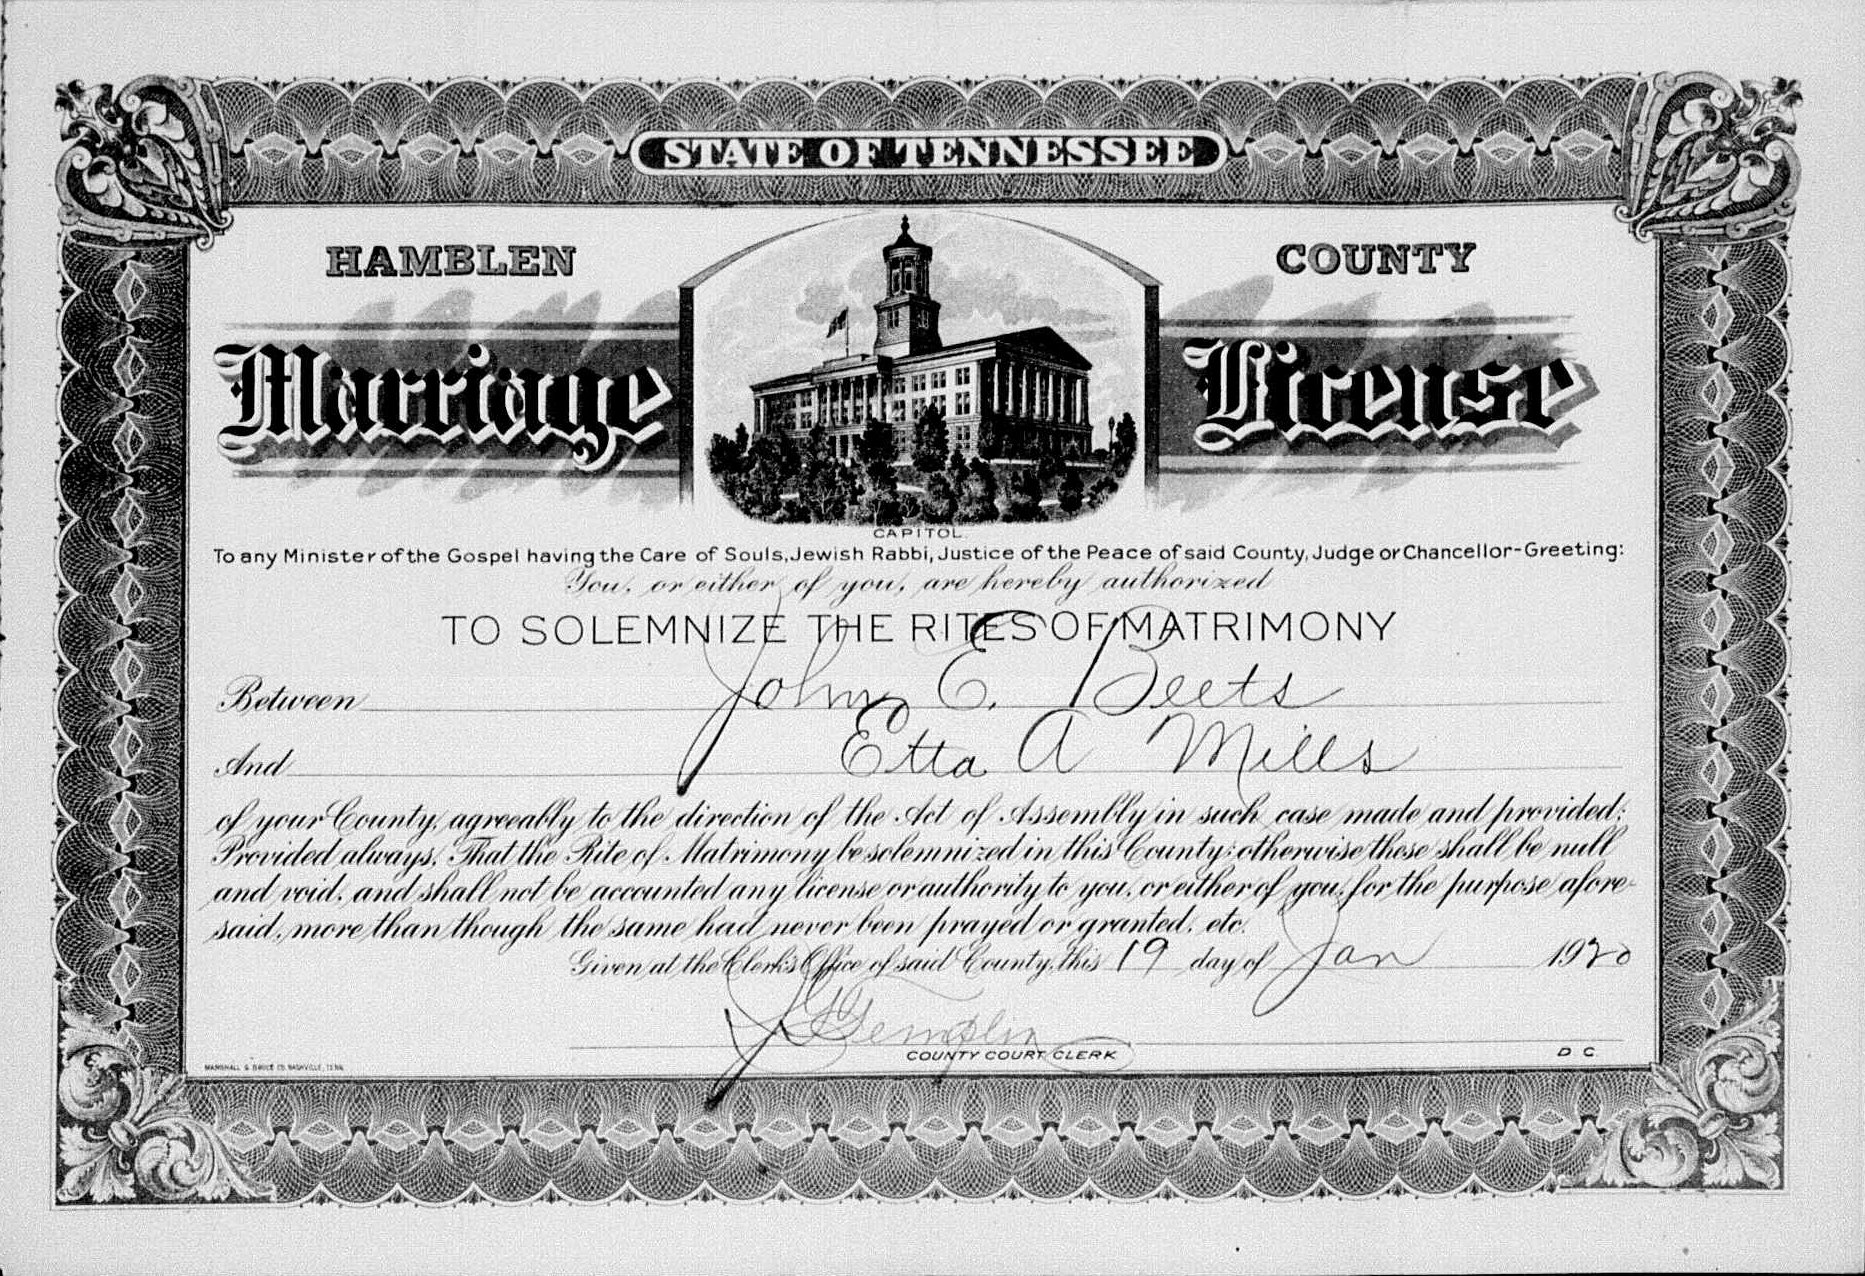 STATE OF TENNESSEE
HAMBLEN COUNTY
Marriage License
CAPITOL.
To any Minister of the Gospel having the Care of Souls, Jewish Rabbi, Justice of the Peace of said County, Judge or Chancellor-Greeting:
You, or either of you, are hereby authorized
TO SOLEMNIZE THE RITES OF MATRIMONY
Between John E. Beets
And Etta A Mills
of your County, agreeably to the direction of the Act of Assembly in such case made and provided;
Provided always, That the Rite of Matrimony be solemnized in this County; otherwise these shall be null
and void, and shall not be accounted any license or authority to you, or either of you, for the purpose afore-
said, more than though the same had never been prayed or granted, etc.
Given at the Clerk's Office of said County, this 19 day of Jan 1920
Templin
COUNTY COURT CLERK D C
MARSHALL & BRUCE CO. NASHVILLE, TENN.